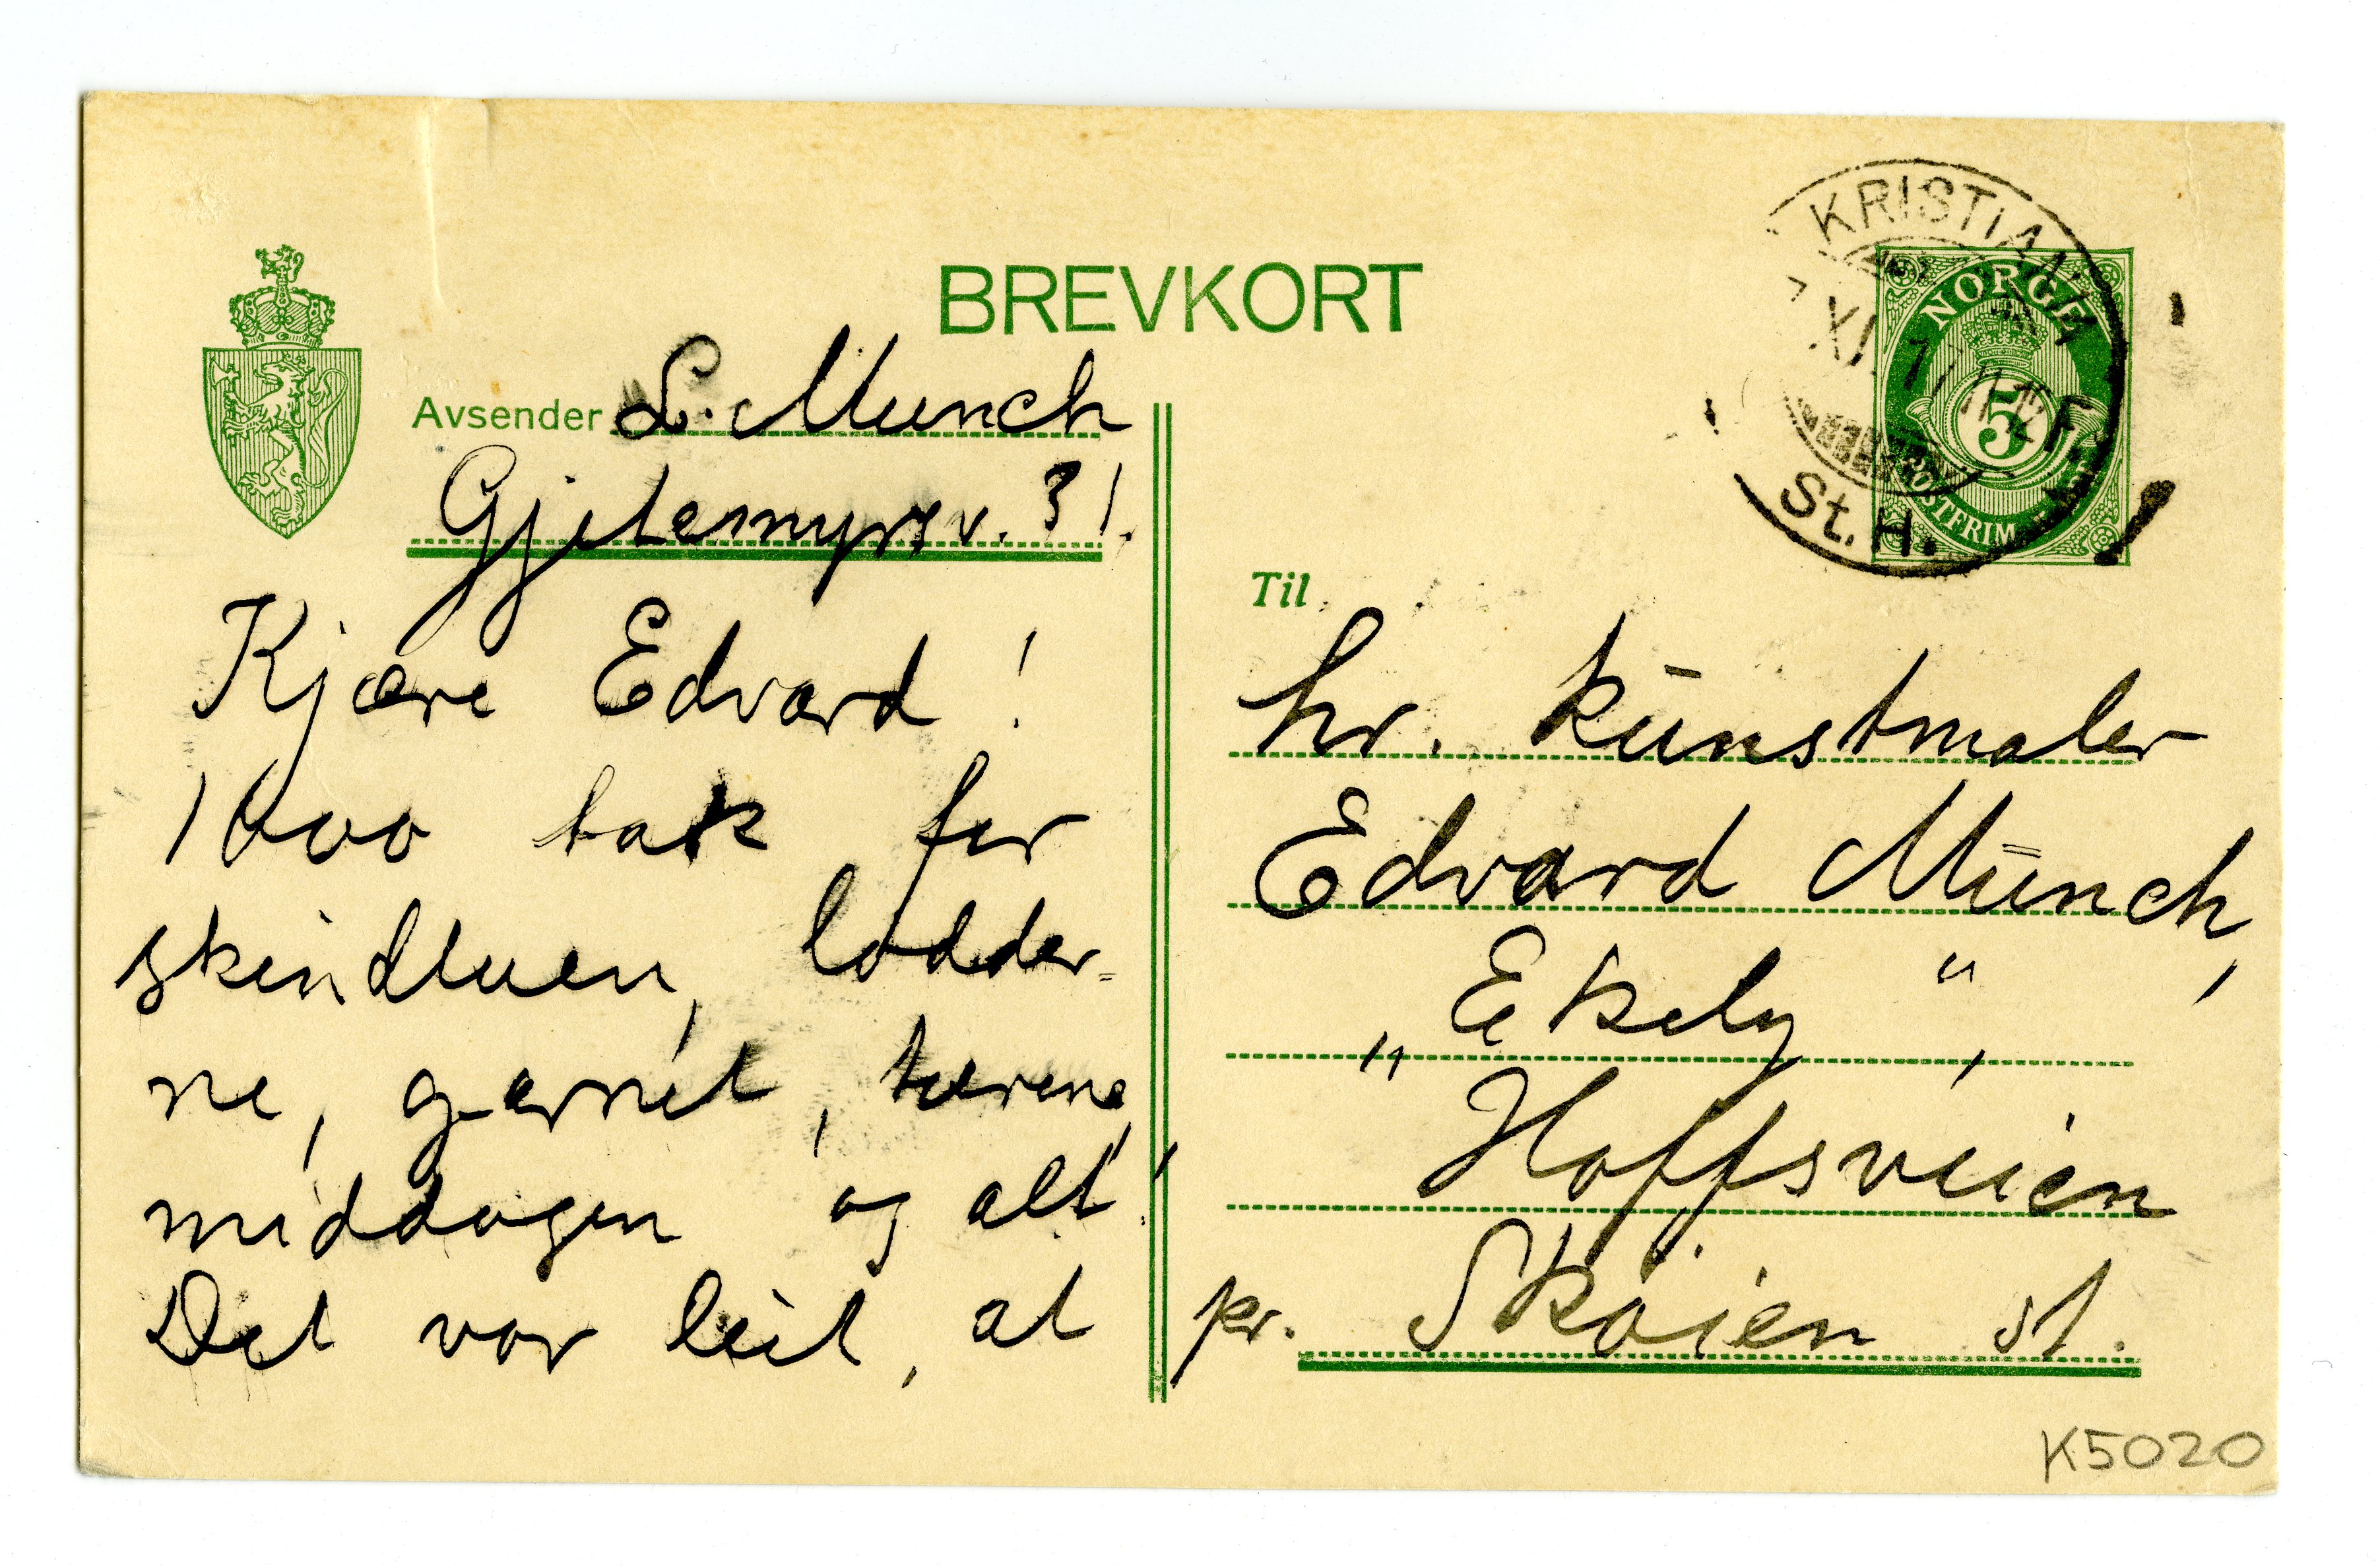 BREVKORT
Avsender L. Munch
Gjetemyrsv. 31.
Kjære Edvard!
1000 tak for
skindluen, lodder-
ne, garnet, turene,
middagen og alt!
Det var leit, at
KRISTIANIA
XI. 17
St. H.
NORGE
5
POSTFRIM
Til
hr. kunstmaler
Edvard Munch,
„Ekely“,
Hoffsveien
pr. Skøien st.
K5020